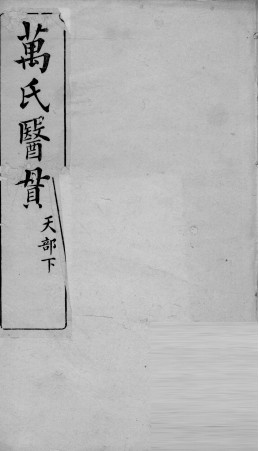 萬氏醫貫
天部下